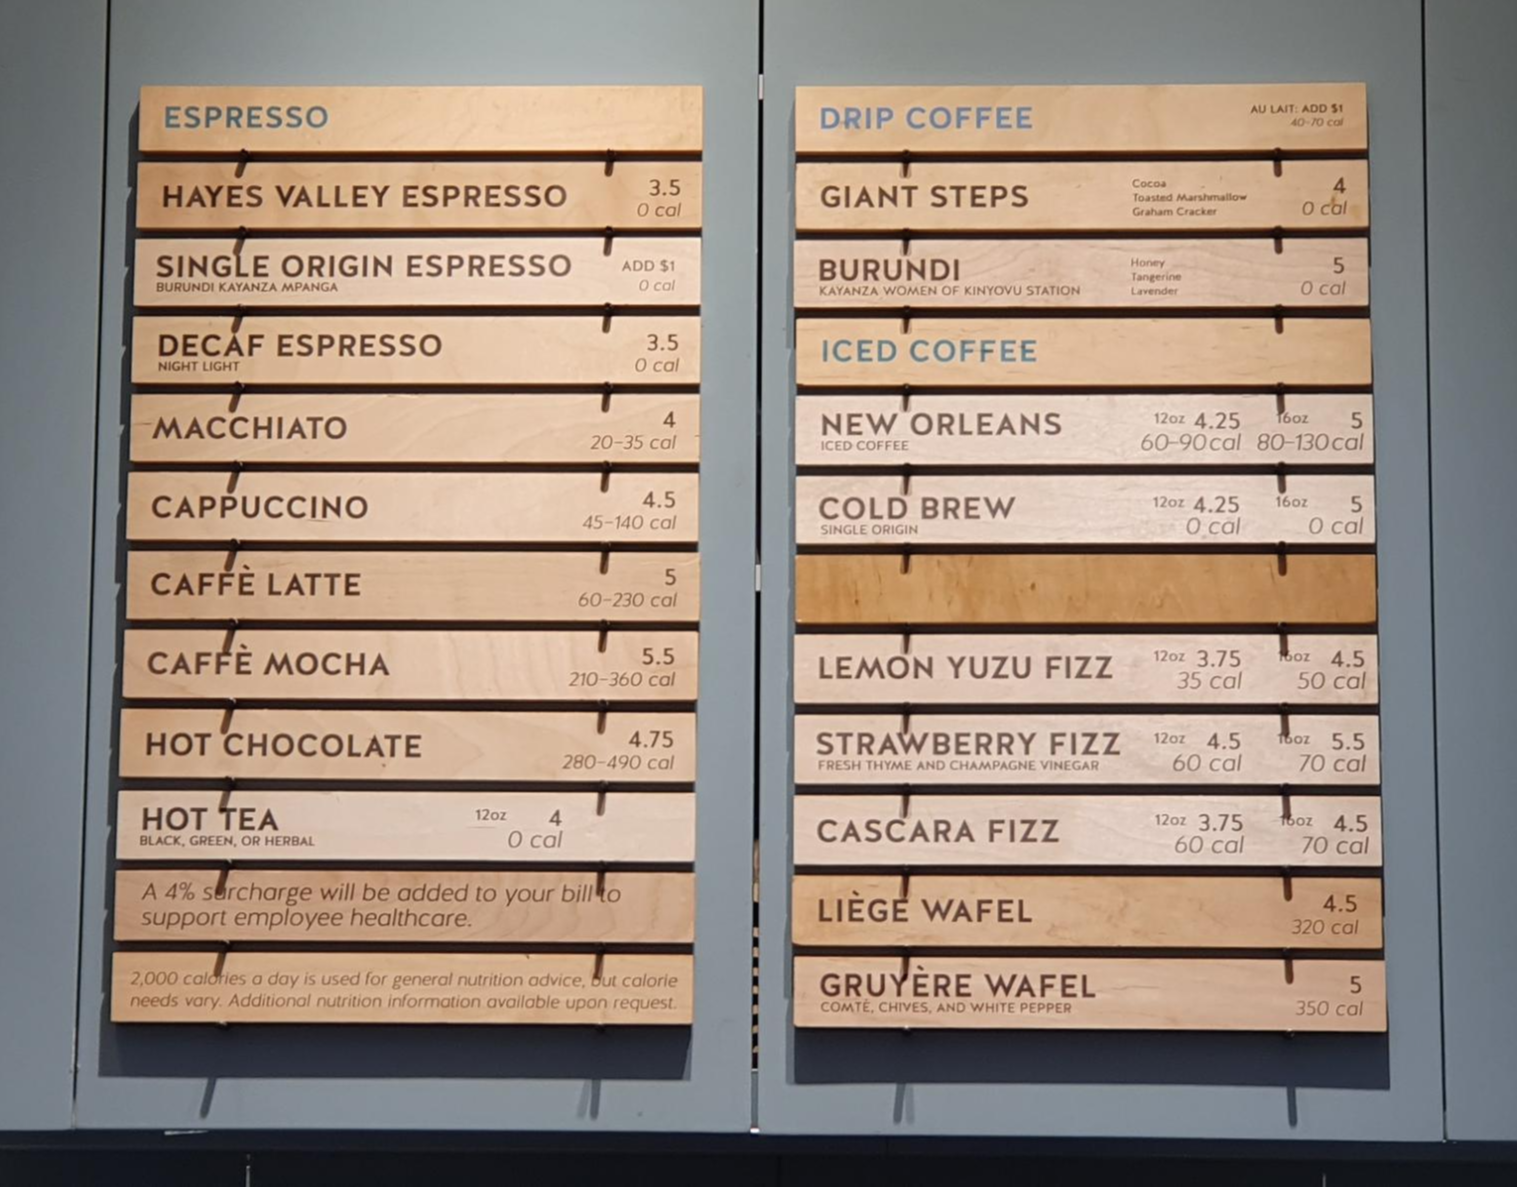 ESPRESSO
HAYES VALLEY ESPRESSO 3.5
0 cal
SINGLE ORIGIN ESPRESSO ADD $1
BURUNDI KAYANZA MPANGA 0 cal
DECAF ESPRESSO 3.5
NIGHT LIGHT 0 cal
MACCHIATO 4
20-35 cal
CAPPUCCINO 4.5
45-140 cal
CAFFÈ LATTE 5
60-230 cal
CAFFÈ MOCHA 5.5
210-360 cal
HOT CHOCOLATE 4.75
280-490 cal
HOT TEA 12oz 4
BLACK, GREEN, OR HERBAL 0 cal
A 4% surcharge will be added to your bill to
support employee healthcare.
2,000 calories a day is used for general nutrition advice, but calorie
needs vary. Additional nutrition information available upon request.
DRIP COFFEE AU LAIT: ADD $1
40-70 cal
GIANT STEPS Cocoa 4
Toasted Marshmallow
Graham Cracker 0 cal
BURUNDI Honey 5
Tangerine
KAYANZA WOMEN OF KINYOVU STATION Lavender 0 cal
ICED COFFEE
NEW ORLEANS 12oz 4.25 16oz 5
ICED COFFEE 60-90 cal 80-130 cal
COLD BREW 12oz 4.25 16oz 5
SINGLE ORIGIN 0 cal 0 cal
LEMON YUZU FIZZ 12oz 3.75 16oz 4.5
35 cal 50 cal
STRAWBERRY FIZZ 12oz 4.5 16oz 5.5
FRESH THYME AND CHAMPAGNE VINEGAR 60 cal 70 cal
CASCARA FIZZ 12oz 3.75 16oz 4.5
60 cal 70 cal
LIÈGE WAFEL 4.5
320 cal
GRUYÈRE WAFEL 5
COMTÉ, CHIVES, AND WHITE PEPPER 350 cal